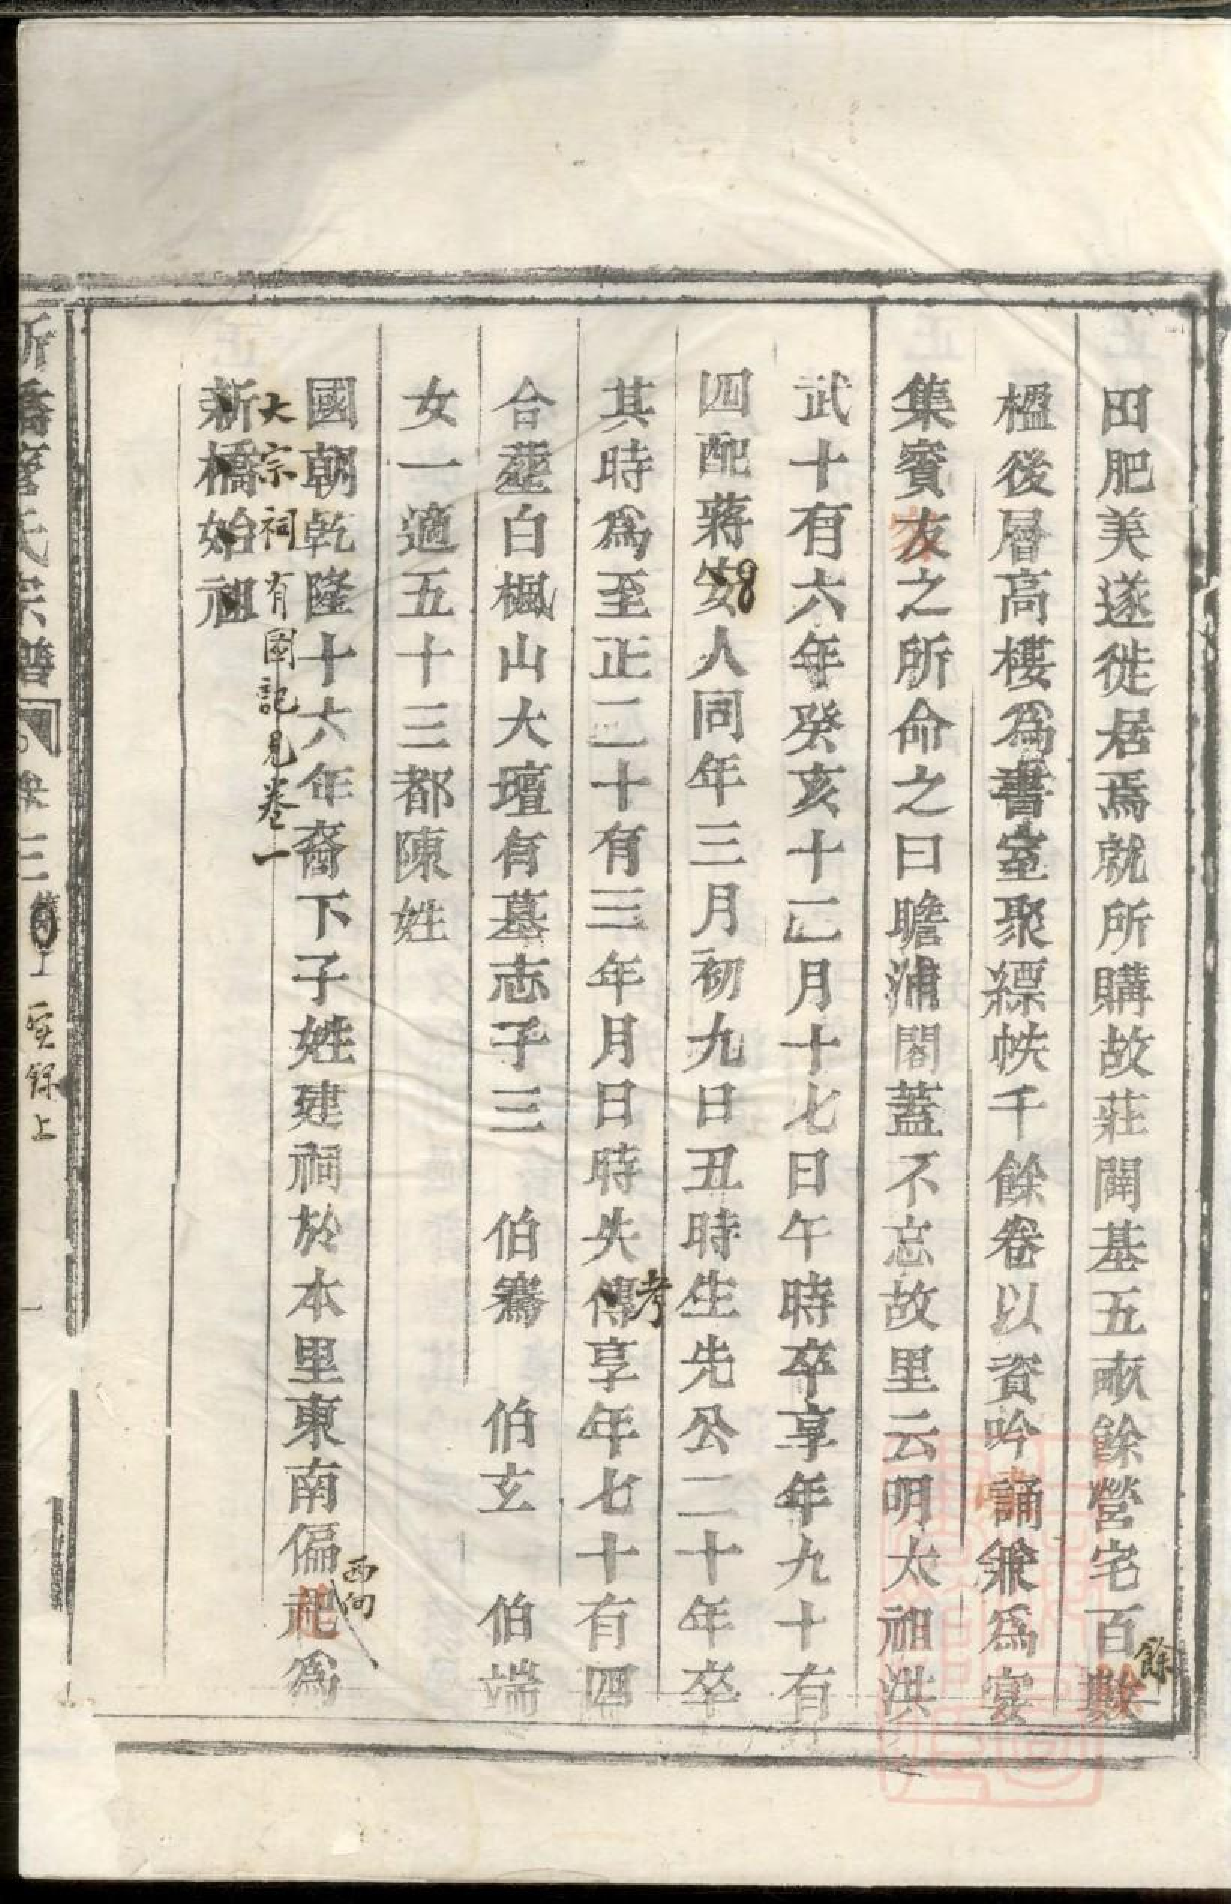 田肥美遂徙居焉就所購故莊闢基五畝餘營宅百數
餘
楹後層高樓為書室聚縹帙千餘卷以資吟誦兼為宴
集賓友之所命之曰瞻浦閣蓋不忘故里云明太祖洪
武十有六年癸亥十二月十七日午時卒享年九十有
四配蔣安人同年三月初九日丑時生先公二十年卒
其時為至正二十有三年月日時失傳享年七十有四
考
合塟白楓山大壇有墓志子三 伯騫 伯玄 伯端
女一適五十三都陳姓
國朝乾隆十六年裔下子姓建祠於本里東南偏祀為
西向
大宗祠有圖記見卷一
新橋始祖
新橋管氏宗譜 卷三 實錄上